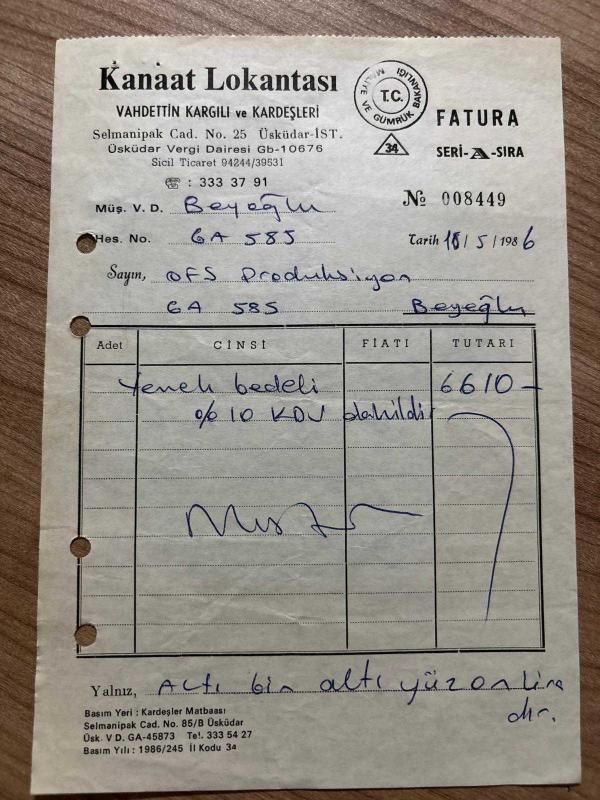 Kanaat Lokantası
VAHDETTİN KARGILI ve KARDEŞLERİ
Selmanipak Cad. No. 25 Üsküdar-İST.
Üsküdar Vergi Dairesi Gb-10676
Sicil Ticaret 94244/39531
☎ : 333 37 91
MALİYE VE GÜMRÜK BAKANLIĞI
T.C.
34
FATURA
SERİ-A-SIRA
Müş. V. D. Beyoğlu
№ 008449
Hes. No. GA 585
Tarih 18/5/1986
Sayın, OFS Prodüksiyon
GA 585 Beyoğlu
Adet CİNSİ FİATI TUTARI
Yemek bedeli 6610-
% 10 KDV dahildir
Yalnız, Altı bin altı yüz on Lira
dır.
Basım Yeri : Kardeşler Matbaası
Selmanipak Cad. No. 85/B Üsküdar
Üsk. V D. GA-45873 Tel. 333 54 27
Basım Yılı : 1986/245 İl Kodu 34